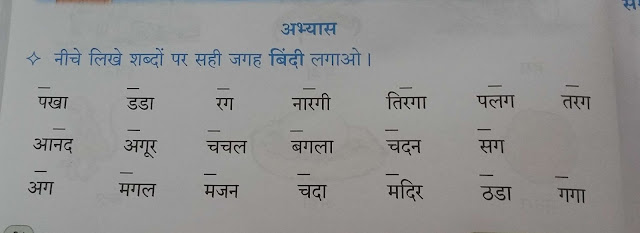 अभ्यास
✧ नीचे लिखे शब्दों पर सही जगह बिंदी लगाओ ।
पखा डडा रग नारगी तिरगा पलग तरग
आनद अगूर चचल बगला चदन सग
अग मगल मजन चदा मदिर ठडा गगा